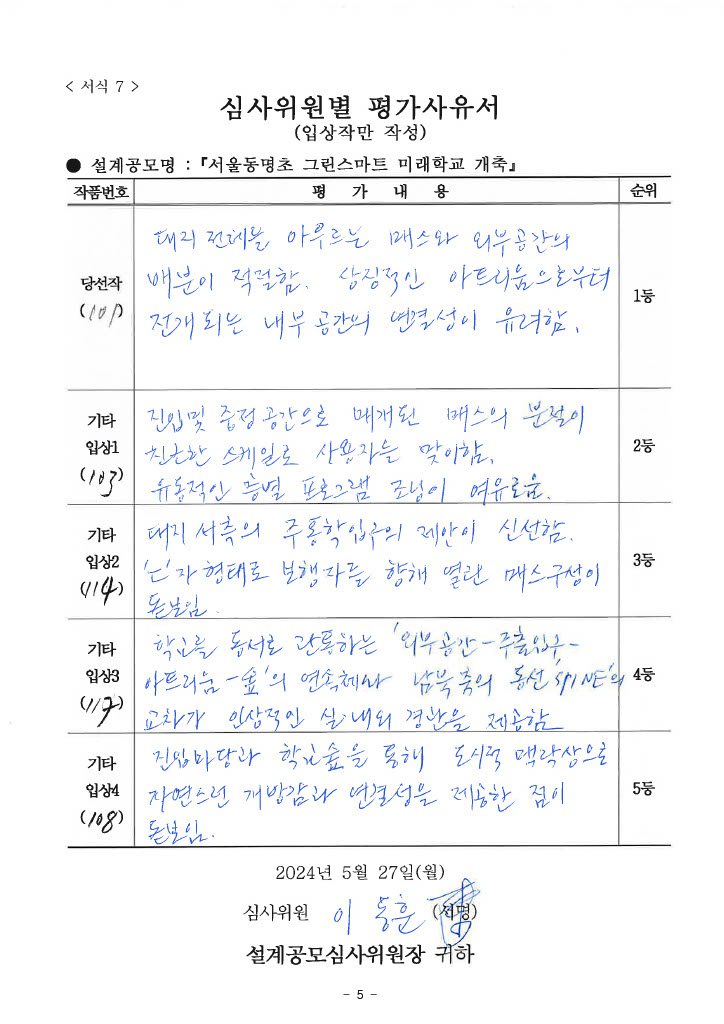 < 서식 7 >
심사위원별 평가사유서
(입상작만 작성)
● 설계공모명 : 『서울동명초 그린스마트 미래학교 개축』
작품번호 평 가 내 용 순위
당선작
(101)
대지 전체를 아우르는 매스와 외부공간의
배분이 적절함. 상징적인 아트리움으로부터
전개되는 내부공간의 연결성이 유려함.
1등
기타
입상1
(103)
진입및 중정공간으로 매개된 매스의 분절이
친근한 스케일로 사용자를 맞이함.
유동적인 층별 프로그램 조닝이 여유로움.
2등
기타
입상2
(114)
대지 서측의 주통학입구의 제안이 신선함.
'ㄷ'자 형태로 보행자를 향해 열린 매스구성이
돋보임.
3등
기타
입상3
(117)
학교를 동서로 관통하는 '외부공간-주출입구-
아트리움-숲'의 연속체와 남북축의 동선 'SPINE'의
교차가 인상적인 실내외 경관을 제공함
4등
기타
입상4
(108)
진입마당과 학교숲을 통해 도시적 맥락상으로
자연스런 개방감과 연결성을 제공한 점이
돋보임.
5등
2024년 5월 27일(월)
심사위원 이 동훈 (서명)
설계공모심사위원장 귀하
- 5 -